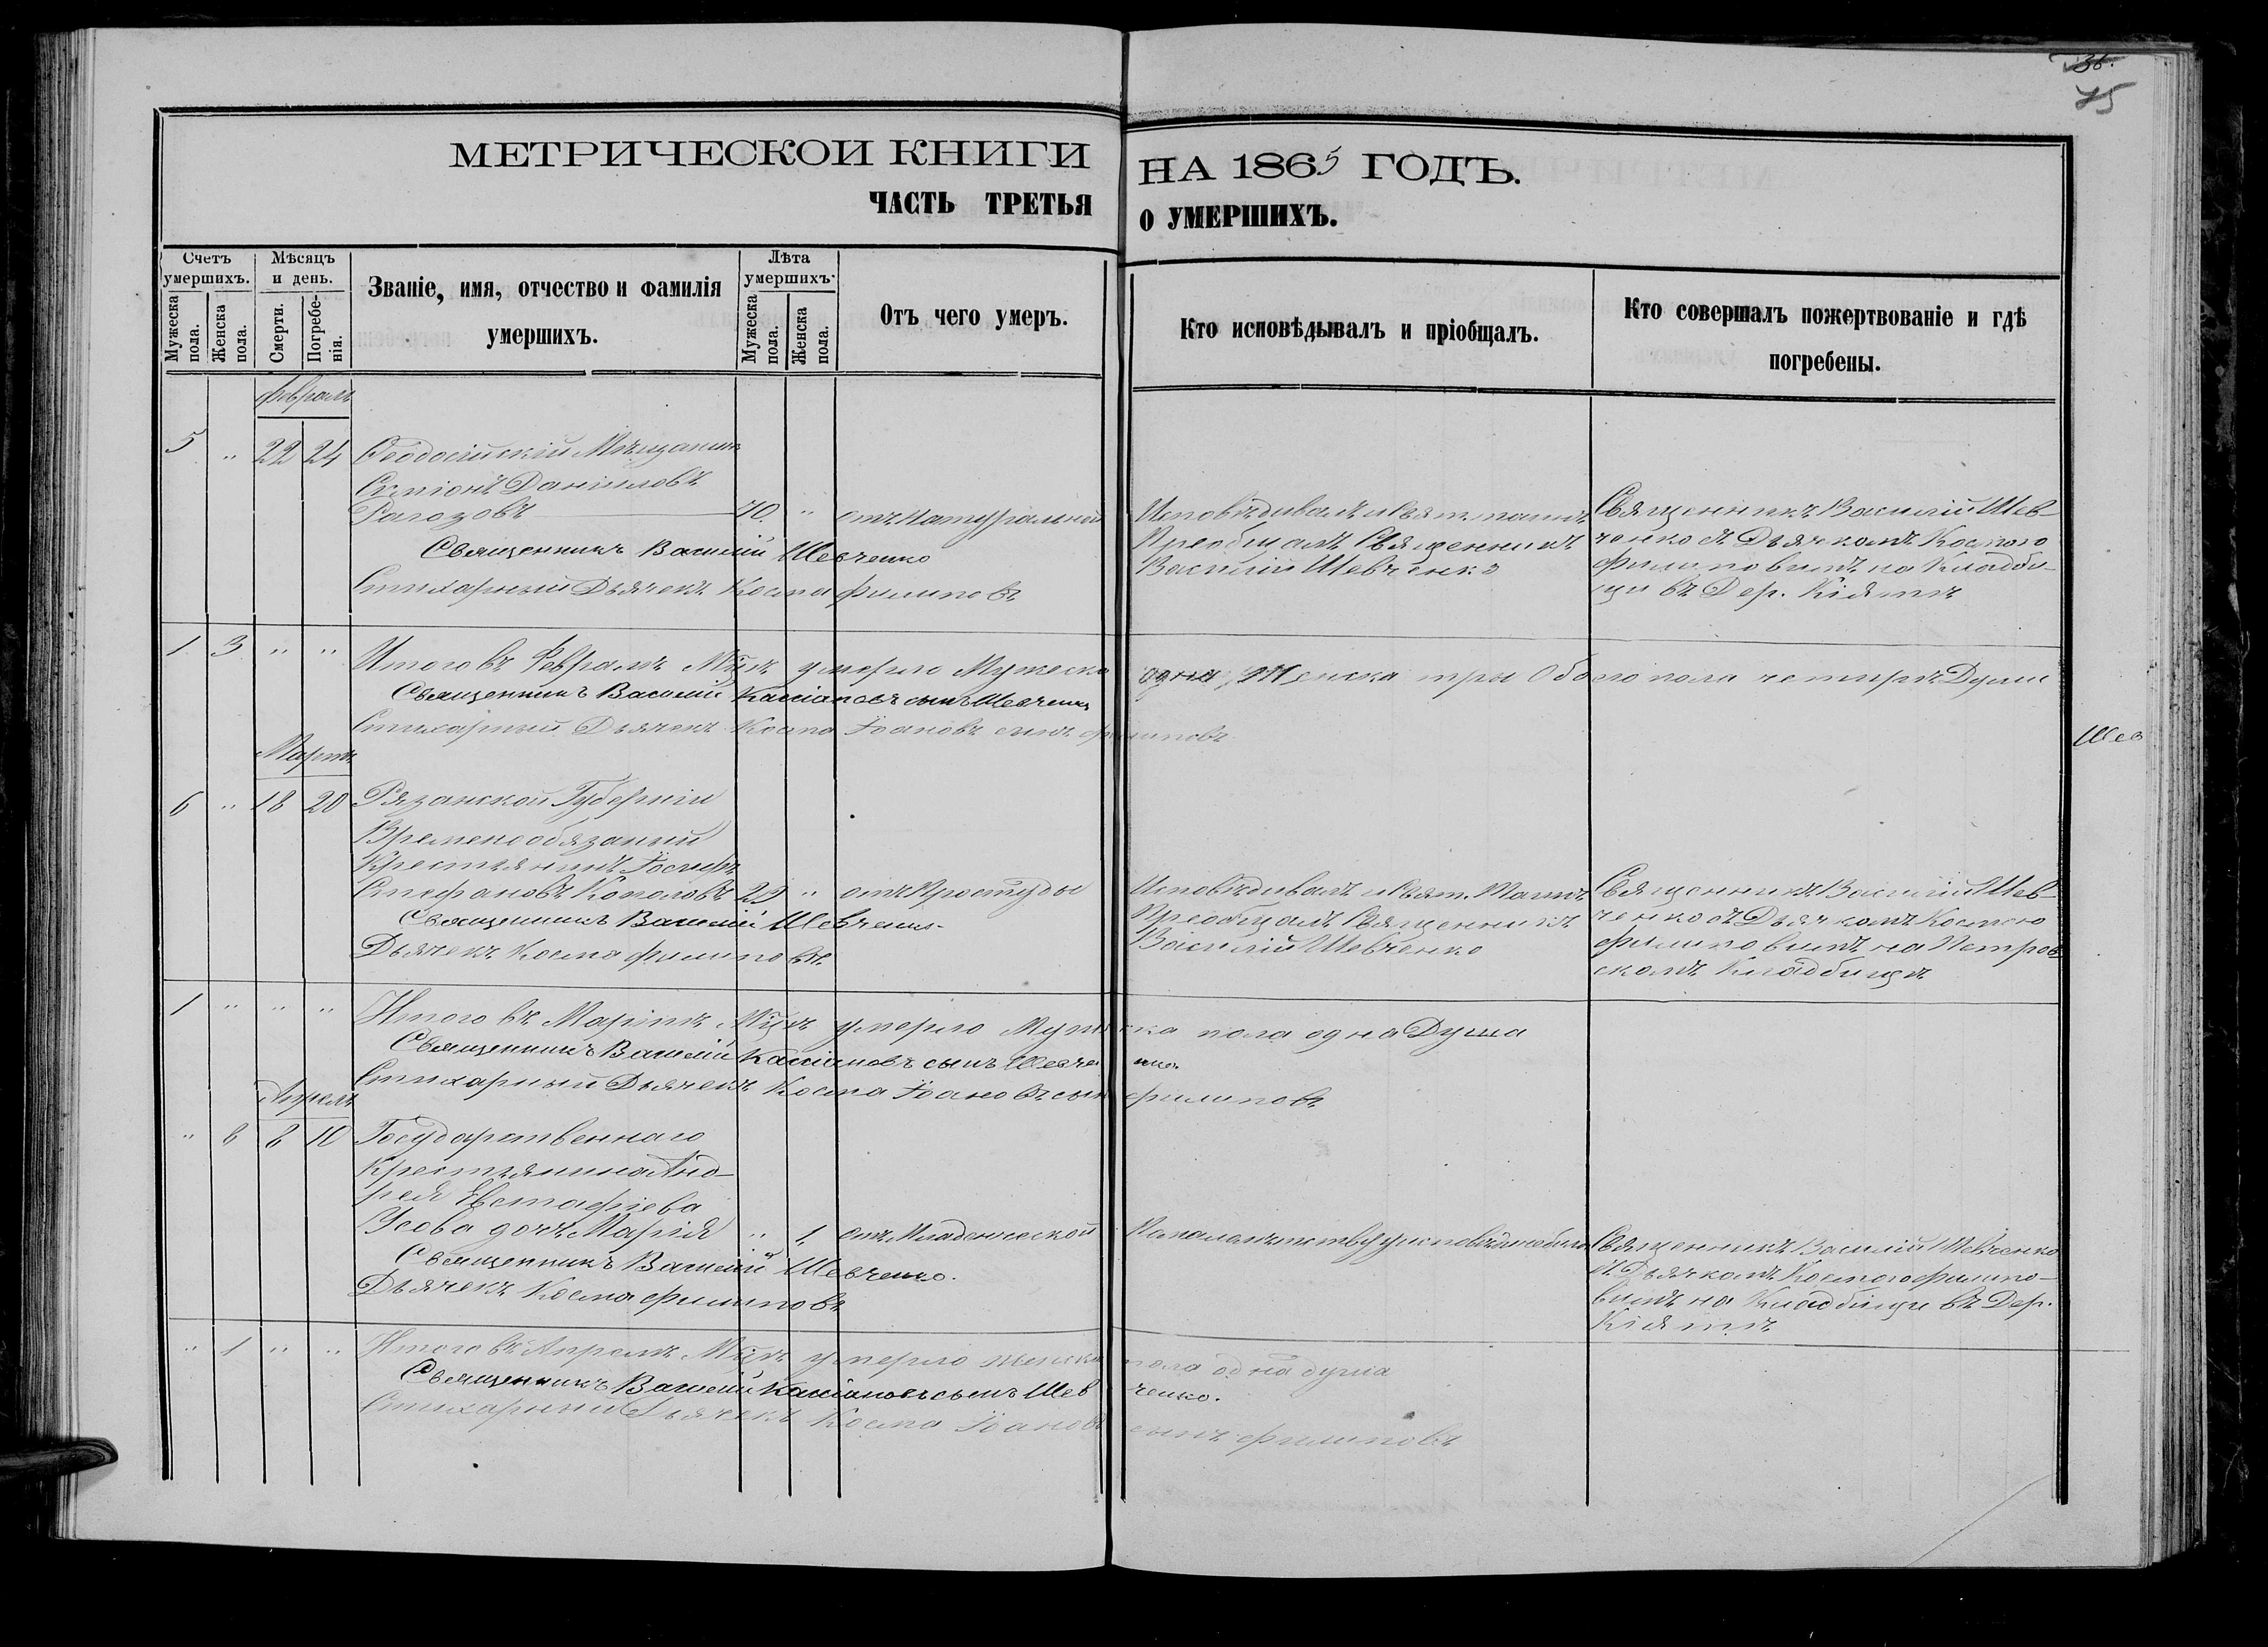 36.
75
МЕТРИЧЕСКОЙ КНИГИ НА 1865 ГОДЪ.
ЧАСТЬ ТРЕТЬЯ О УМЕРШИХЪ.
Счетъ умершихъ.
Мужеска пола.
Женска пола.
Мѣсяцъ и день.
Смерти.
Погребенія.
Званіе, имя, отчество и фамилія умершихъ.
Лѣта умершихъ.
Мужеска пола.
Женска пола.
Отъ чего умеръ.
Кто исповѣдывалъ и пріобщалъ.
Кто совершалъ пожертвованіе и гдѣ погребены.
Февраль
5 " 22 24 Ѳеодосійскій Мѣщанинъ
Симіонъ Даніиловъ
Рагозовъ 70. " отъ натуральной
Исповѣдивалъ и Свят. таинъ
Преобщалъ Священникъ
Василій Шевченко
Священникъ Василій Шев-
ченко съ Дьячкомъ Космою
Филиповимъ на Кладби-
щи въ Дер. Кіятъ
Священникъ Василій Шевченко
Стихарный Дьячекъ Косма Филиповъ
1 3 " " Итого въ Февралѣ М-цѣ умерло Мужеска одна, Женска три Обоего пола четыре Души
Священникъ Василій Кассіановъ сынъ Шевченко
Стихарный Дьячекъ Косма Іоановъ сынъ Филиповъ
Шев
Мартъ
6 " 18 20 Рязанской Губерніи
Временообязаный
Крестьянинъ Іосифъ
Стефановъ Кополовъ 29 " отъ Простуды
Исповѣдивалъ и Свят. Таинъ
Преобщалъ Священникъ
Василій Шевченко
Священникъ Василій Шев-
ченко съ Дьячкомъ Космою
Филиповимъ на Петров
скомъ Кладбищѣ
Священникъ Василій Шевченко.
Дьячекъ Косма Филиповъ
1 " " " Итого въ Мартѣ М-цѣ умерло Мужеска пола одна Душа
Священникъ Василій Кассіановъ сынъ Шевченко.
Стихарный Дьячекъ Косма Іоановъ сынъ Филиповъ
Апрель
" 8 8 10 Государственнаго
Крестьянина Анд-
рея Евстафіева
Усова дочь Марія " 1, отъ Младенческой
По малолѣтству исповѣди небыло
Священникъ Василій Шевченко
съ Дьячкомъ Космою Филипо-
вимъ на Кладбищи въ Дер.
Кіятъ
Священникъ Василій Шевченко.
Дьячекъ Косма Филиповъ
" 1 " " Итого въ Апрелѣ М-цѣ умерло женска пола одна душа
Священникъ Василій Кассіановъ сынъ Шевченко.
Стихарный Дьячекъ Косма Іоановъ сынъ Филиповъ